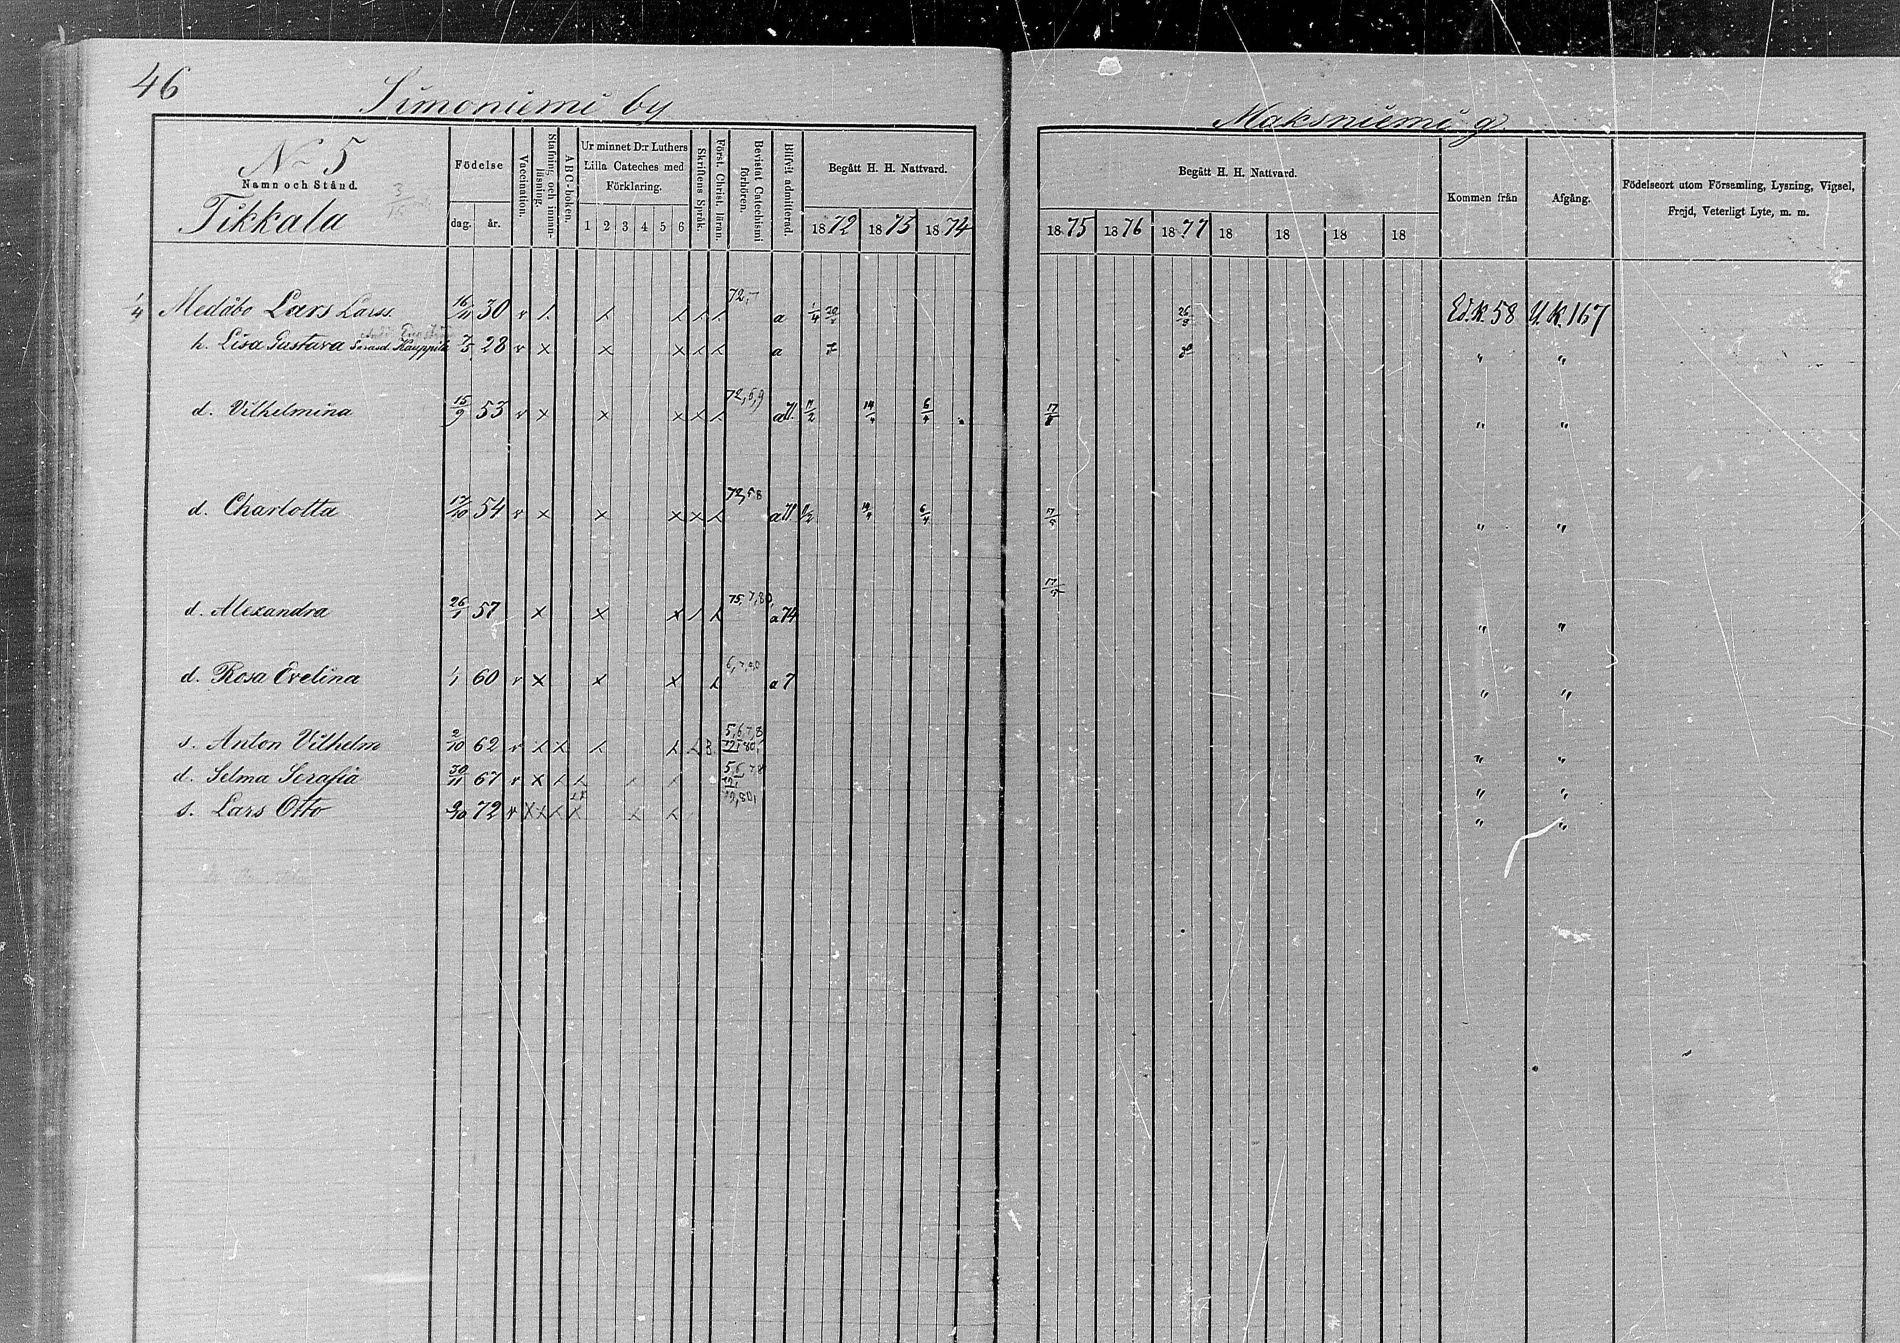 46
Simoniemi by
Maksniemi g.
No 5
Namn och Stånd.
3/15
Tikkala
Födelse
dag. år.
Vaccination.
Stafning och innan-läsning.
ABC-boken.
Ur minnet D:r Luthers
Lilla Cateches med
Förklaring.
1 2 3 4 5 6
Skriftens Språk.
Först. Christ. läran.
Bevistat Catechismi förhören.
Blifvit admitterad.
Begått H. H. Nattvard.
1872 1873 1874
Begått H. H. Nattvard.
1875 1876 1877 18 18 18 18
Kommen från
Afgång.
Födelseort utom Församling, Lysning, Vigsel,
Frejd, Veterligt Lyte, m. m.
1/4 Medåbo Lars Larss. 16/11 30 v 72,7 a 1/4 26/9 Ed. K. 58 U. K. 167
h. Lisa Gustava Sarasd. Kauppila 28 v x x x a " "
d. Vilhelmina 15/9 53 v x x x x 72,6,9 a 71. 11/2 14/4 6/4 17/5 " "
d. Charlotta 17/10 54 v x x x x 72,5 8 a 71 14/4 6/4 17/5 " "
d. Alexandra 26/1 57 x x x 75,7,80, a 74 17/5 " "
d. Rosa Evelina 1/1 60 v x x x a 7 " "
s. Anton Vilhelm 2/10 62 v 5,6,7,8 " "
d. Selma Serafia 30/11 67 v x 5,6,7,8 " "
s. Lars Otto 2/10 72 v x x x 79,80, " "